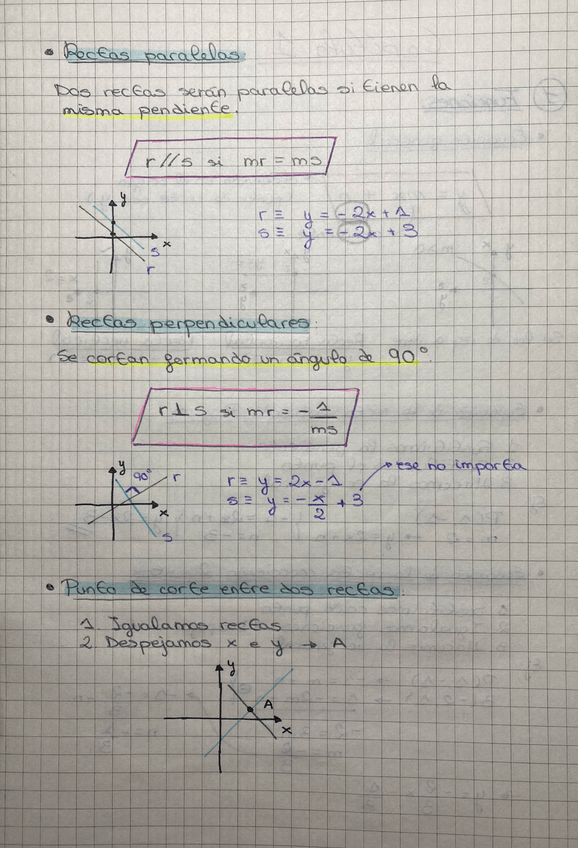 • Rectas paralelas.
Dos rectas serán paralelas si tienen la
misma pendiente.
r//s si mr = ms
y
x
s
r
r ≡ y = -2x + 1
s ≡ y = -2x + 3
• Rectas perpendiculares.
Se cortan formando un ángulo de 90°.
r⊥s si mr = - 1/ms
y
90°
r
x
s
→ ese no importa
r ≡ y = 2x - 1
s ≡ y = - x/2 + 3
• Punto de corte entre dos rectas.
1 Igualamos rectas
2 Despejamos x e y. → A
y
A
x